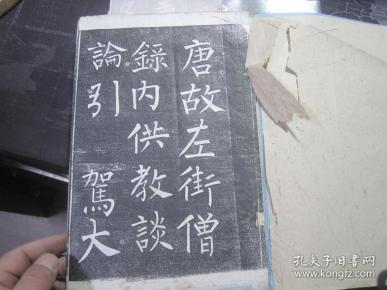 唐故左街僧
錄內供教談
論引駕大
孔夫子旧书网
www.kongfz.com